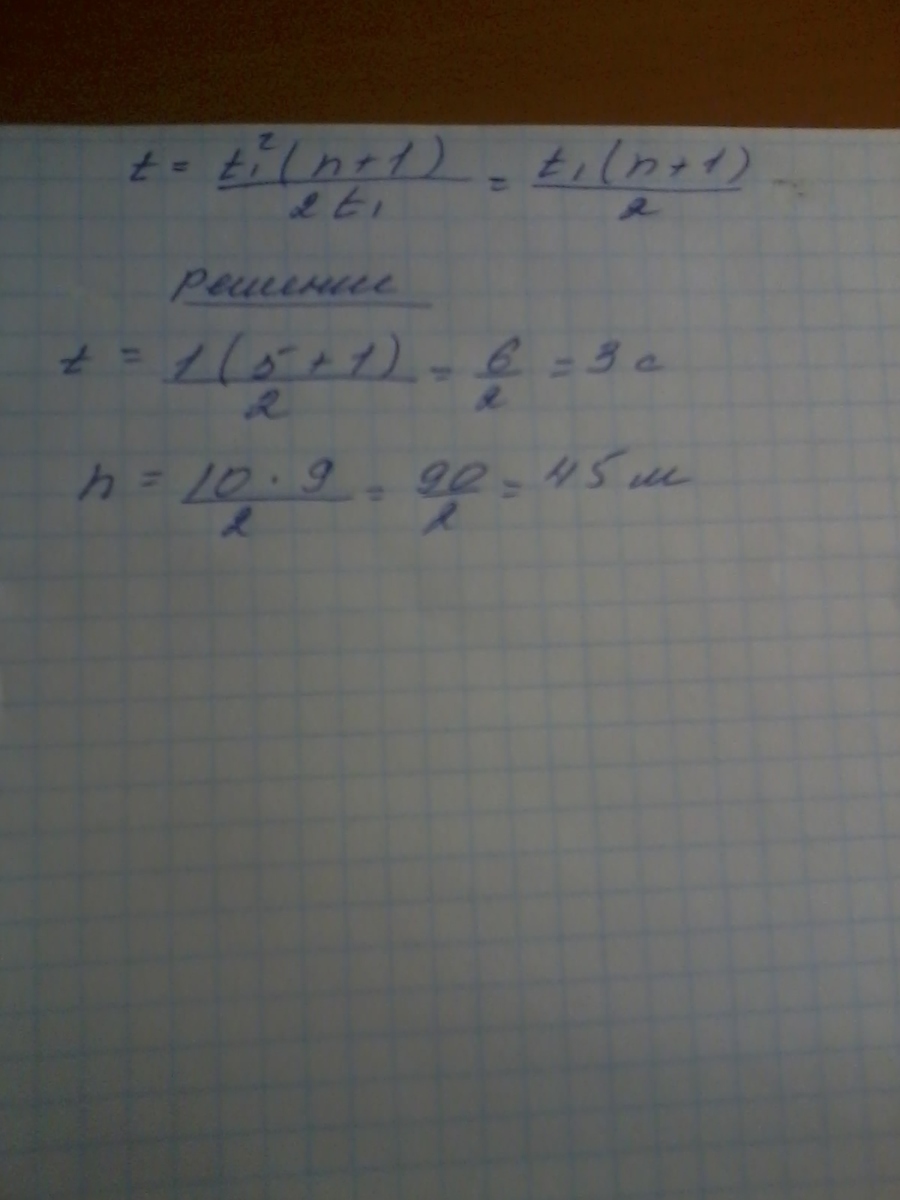 t = t₁²(n+1)/2t₁ = t₁(n+1)/2
Решение
t = 1(5+1)/2 = 6/2 = 3 с
h = 10·9/2 = 90/2 = 45 м